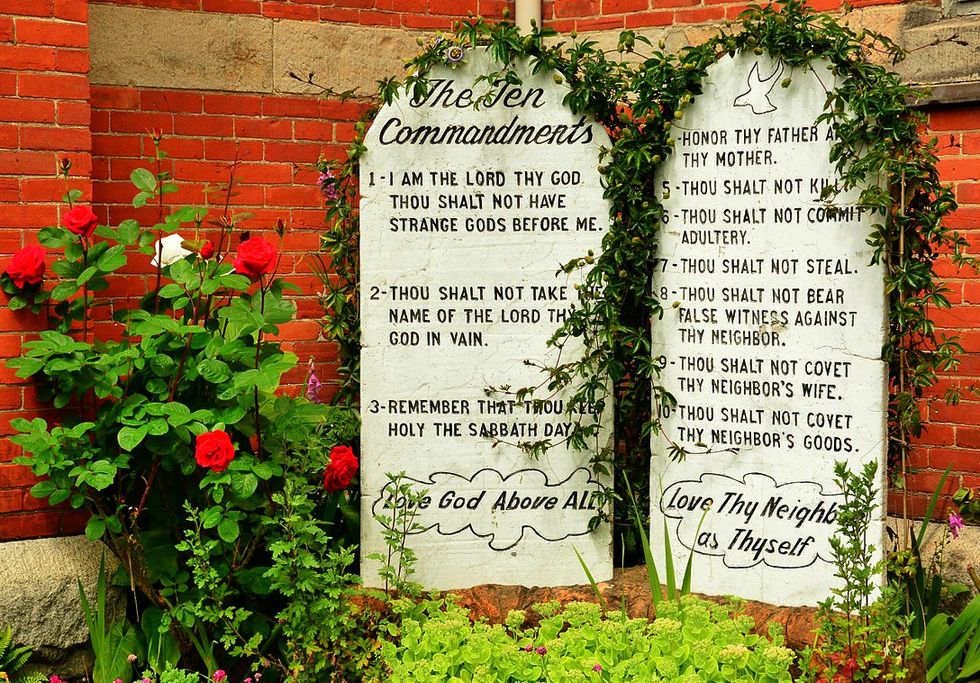 The Ten
Commandments
1- I AM THE LORD THY GOD
THOU SHALT NOT HAVE
STRANGE GODS BEFORE ME.
2- THOU SHALT NOT TAKE THE
NAME OF THE LORD THY
GOD IN VAIN.
3- REMEMBER THAT THOU KEEP
HOLY THE SABBATH DAY.
Love God Above All
-HONOR THY FATHER AND
THY MOTHER.
5 - THOU SHALT NOT KILL
6 - THOU SHALT NOT COMMIT
ADULTERY.
7 - THOU SHALT NOT STEAL.
8 - THOU SHALT NOT BEAR
FALSE WITNESS AGAINST
THY NEIGHBOR.
9 - THOU SHALT NOT COVET
THY NEIGHBOR'S WIFE.
10 - THOU SHALT NOT COVET
THY NEIGHBOR'S GOODS.
Love Thy Neighbor
as Thyself